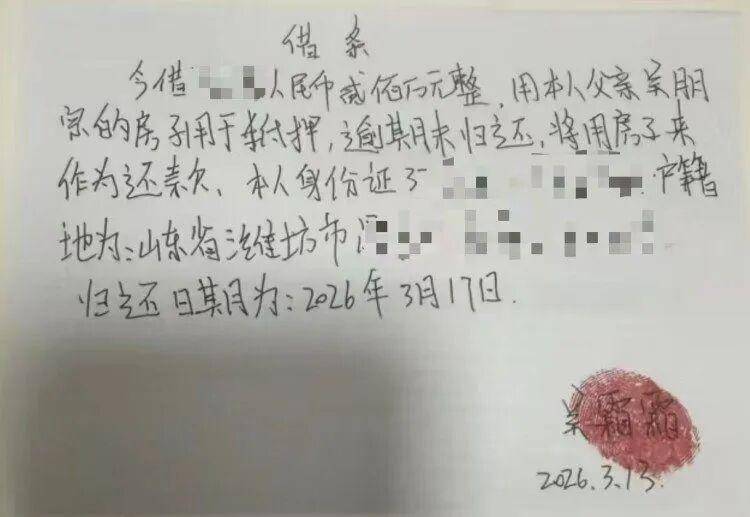 借条
今借人民币贰佰万元整,用本人父亲吴朋
宗的房子用于抵押,逾期未归还,将用房子来
作为还款、本人身份证3 户籍
地为:山东省潍坊市
归还日期为:2026年3月17日.
吴霜霜
2026.3.13.